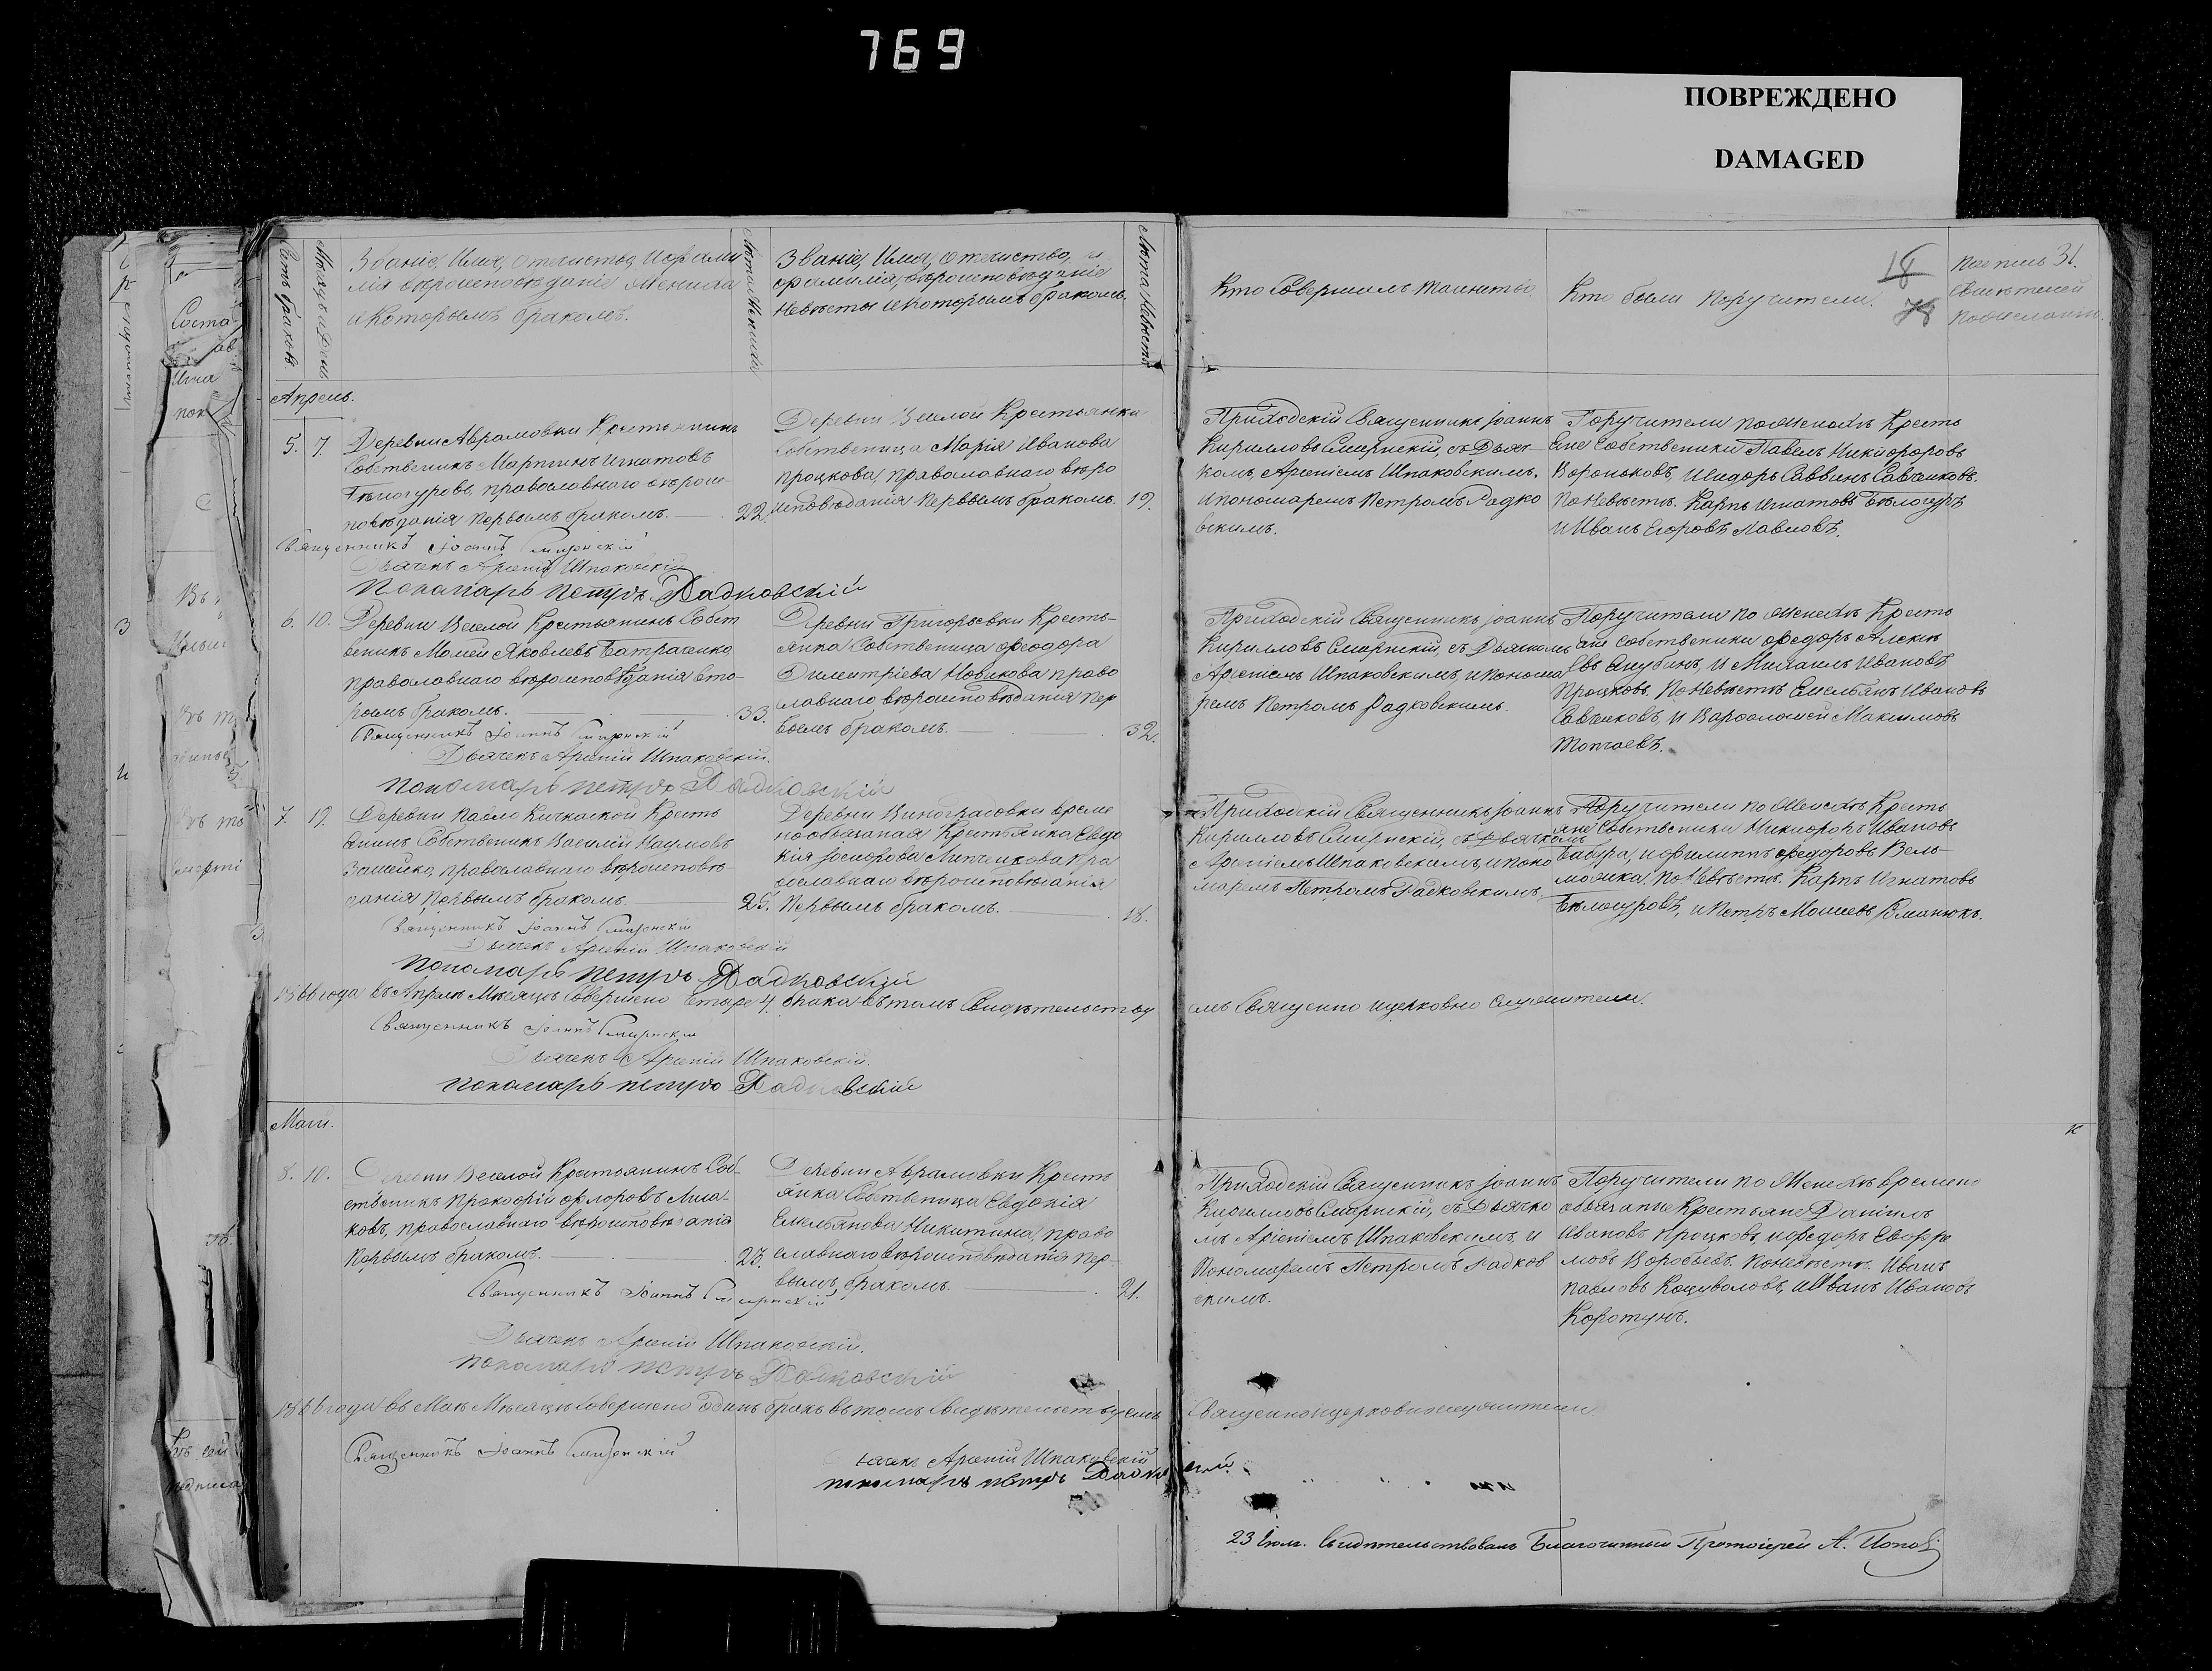 769
ПОВРЕЖДЕНО
DAMAGED
Счетъ браковъ
Мѣсяцъ и день
Званіе, Имя, Отечество, и фами
лія вѣроисповѣданіе Жениха
и Которымъ бракомъ.
Лѣта Жениха
Званіе, Имя, Отечество, и
фамилія, вѣроисповѣданіе
Невѣсты и Которымъ бракомъ.
Лѣта Невѣсты
Кто Совершалъ Таинство.
Кто были Поручители.
31.
Свидѣтелей
по желанію.
Апрель.
5. 7. Деревни Аврамовки Крестьянинъ
Собственникъ Мартинъ Игнатовъ
Бѣлогуровъ, православнаго вѣроис-
повѣданія первымъ бракомъ. 22.
Деревни Веселой Крестьянка
Собственница Марія Иванова
Процкова, православнаго вѣро
исповѣданія первымъ бракомъ. 19.
Приходскій Священникъ Іоаннъ
Кирилловъ Смирнскій, съ Дьяч-
комъ, Арсеніемъ Шпаковскимъ.
и пономаремъ Петромъ Радко
вскимъ.
Поручители по женихѣ Кресть
яне Собственики Павелъ Никифоровъ
Вороньковъ, Исидоръ Саввинъ Савченковъ.
По Невѣсте. Карпъ Игнатовъ Бѣлогуръ
и Иванъ Егоровъ Павловъ.
Священникъ Іоаннъ Смирнскій
Дьячекъ Арсеній Шпаковскій
Пономарь Петръ Радковскій
6. 10. Деревни Веселой Крестьянинъ Собст
веникъ Моисей Яковлевъ Батраченко
православнаго вѣроисповѣданія вто-
рымъ бракомъ. 33.
Деревни Григорьевки Кресть-
янка Собственица Феодора
Димитріева Новикова право
славнаго вѣроисповѣданія пер
вымъ бракомъ. 32.
Приходскій Священникъ Іоаннъ
Кирилловъ Смирнскій, съ Дьячкомъ
Арсеніемъ Шпаковскимъ, и понома
ремъ Петромъ Радковскимъ.
Поручители по женихѣ Кресть
яне собственики Федоръ Алексѣ
евъ Якубинъ, и Михаилъ Ивановъ
Процковъ. По Невѣстѣ Емельянъ Ивановъ
Савченковъ, и Варфоломей Максимовъ
Топчаевъ.
Священникъ Іоаннъ Смирнскій
Дьячекъ Арсеній Шпаковскій.
Пономарь Петръ Радковскій
7. 19. Деревни Павло Кичкаской Кресть
янинъ Собственикъ Василій Наумовъ
православнаго вѣроисповѣ
данія первымъ бракомъ. 25.
Деревни Виноградовки време
но обязаная Крестьянка Евдо
кія Липченкова пра
вославнаго вѣроисповѣданія
первымъ бракомъ. 18.
Приходскій Священникъ Іоаннъ
Кирилловъ Смирнскій, съ Дьячкомъ
Арсеніемъ Шпаковскимъ, и поно
маремъ Петромъ Радковскимъ.
Поручители по Женихѣ Кресть
яне Собственики Никифоръ Ивановъ
Бабура, и Филиппъ Федоровъ Вель-
можка. По Невѣсте. Карпъ Игнатовъ
Бѣлогуровъ, и Петръ Моисеевъ
Священникъ Іоаннъ Смирнскій
Дьячекъ Арсеній Шпаковскій
Пономарь Петръ Радковскій
1866 года въ Апрелѣ Мѣсяцѣ Совершено 4 брака въ томъ Свидѣтельству емъ Священно и церковно служители.
Священникъ Іоаннъ Смирнскій
Дьячекъ Арсеній Шпаковскій.
Пономарь Петръ Радковскій
Маія.
8. 10. Деревни Веселой Крестьянинъ Соб-
ственикъ Прокофій Флоровъ Лиса-
ковъ, православнаго вѣроисповѣданія
первымъ бракомъ. 23.
Деревни Аврамовки Кресть
янка Собственица Евдокія
Емельянова Никитина, право
славнаго вѣроисповѣданія пер-
вымъ бракомъ. 21.
Приходскій Священникъ Іоаннъ
Кирилловъ Смирнскій, съ Дьячко
мъ Арсеніемъ Шпаковскимъ, и
Пономаремъ Петромъ Радков
скимъ.
Поручители по Женихѣ времено
обязанные Крестьяне Даніилъ
Ивановъ Процковъ, и Федоръ Ефре
мовъ Воробьевъ. По невѣсте. Иванъ
Павловъ Коцуволовъ, и Иванъ Ивановъ
Коротунъ.
Священникъ Іоаннъ Смирнскій
Дьячекъ Арсеній Шпаковскій.
Пономарь Петръ Радковскій
1866 года въ Маѣ Мѣсяцѣ Совершено Одинъ бракъ въ томъ Свидѣтельствуемъ Священноцерковнослужители
Священникъ Іоаннъ Смирнскій
Дьячекъ Арсеній Шпаковскій
пономарь Петръ Радковскій.
23 Іюля. Свидѣтельствовалъ Благочинный Протоіерей А. Поповъ